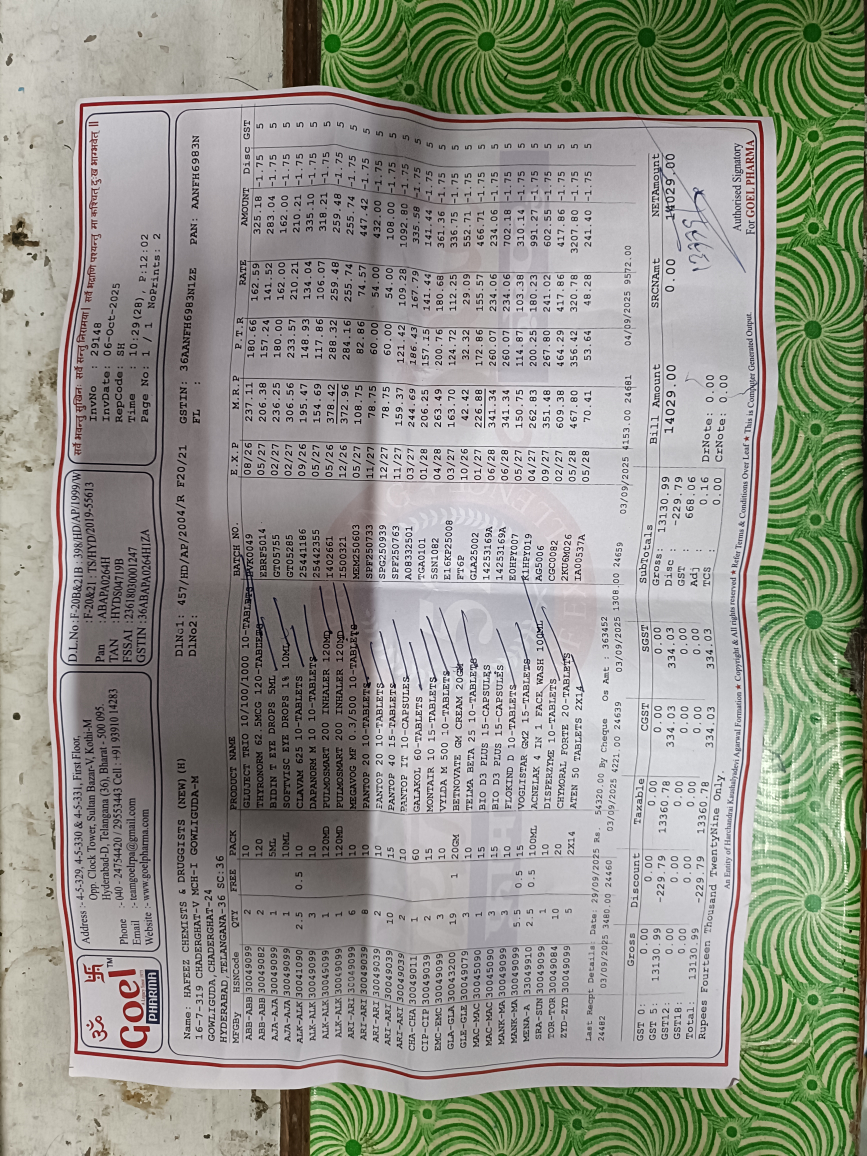 Address :- 4-5-329, 4-5-330 & 4-5-331, First Floor,
Opp. Clock Tower, Sultan Bazar-V, Kothi-M
Hyderabad-D, Telangana (36), Bharat - 500 095.
Phone : 040 - 24754420 / 29553443 Cell : +91 93910 14283
Email :- teamgoelrpa@gmail.com
Website :- www.goelpharma.com
ॐ 卐
Goel™
PHARMA
D.L.No: F-20B&21B : 398/HD/AP/1999/W
F-20&21 : TS/HYD/2019-55613
Pan : ABAPA0264H
TAN : HYDS04719B
FSSAI : 23618030001247
GSTIN : 36ABAPA0264H1ZA
सर्वे भवन्तु सुखिनः सर्वे सन्तु निरामया। सर्वे भद्राणि पश्यन्तु मा कश्चित् दुःख भाग्भवेत् ॥
InvNo : 29148
InvDate: 06-Oct-2025
RepCode: SH
Time : 10:29(28), P:12:02
Page No: 1 / 1 NoPrints: 2
Name: HAFEEZ CHEMISTS & DRUGGISTS (NEW) (H)
16-7-319 CHADERGHAT-V MCH-I GOWLIGUDA-M
GOWLIGUDA,CHADERGHAT-24
HYDERABAD, TELANGANA-36 SC:36
DlNo1: 457/HD/AP/2004/R F20/21 GSTIN: 36AANFH6983N1ZE PAN: AANFH6983N
DlNo2: FL :
MFGBy HSNCode QTY FREE PACK PRODUCT NAME BATCH NO. E.X.P M.R.P P.T.R RATE AMOUNT Disc GST
ABB-ABB 30049099 2 10 GLUJECT TRIO 10/100/1000 10-TABLETS BVK0049 08/26 237.11 180.66 162.59 325.18 -1.75 5
ABB-ABB 30049082 2 120 THYRONORM 62.5MCG 120-TABLETS EBRF5014 05/27 206.38 157.24 141.52 283.04 -1.75 5
AJA-AJA 30049099 1 5ML BIDIN T EYE DROPS 5ML GT05755 02/27 236.25 180.00 162.00 162.00 -1.75 5
AJA-AJA 30049099 1 10ML SOFTVISC EYE DROPS 1% 10ML GT05285 02/27 306.56 233.57 210.21 210.21 -1.75 5
ALK-ALK 30041090 2.5 0.5 10 CLAVAM 625 10-TABLETS 25441186 09/26 195.47 148.93 134.04 335.10 -1.75 5
ALK-ALK 30049099 3 10 DAPANORM M 10 10-TABLETS 25442355 05/27 154.69 117.86 106.07 318.21 -1.75 5
ALK-ALK 30049099 1 120MD PULMOSMART 200 INHALER 120MD I402661 05/26 378.42 288.32 259.48 259.48 -1.75 5
ALK-ALK 30049099 1 120MD PULMOSMART 200 INHALER 120MD I500321 12/26 372.96 284.16 255.74 255.74 -1.75 5
ARI-ARI 30049099 6 10 MEGAVOG MF 0.3/500 10-TABLETS MEM250603 05/27 108.75 82.86 74.57 447.42 -1.75 5
ARI-ARI 30049039 8 10 PANTOP 20 10-TABLETS SPF250733 11/27 78.75 60.00 54.00 432.00 -1.75 5
ARI-ARI 30049039 2 10 PANTOP 20 10-TABLETS SPG250939 12/27 78.75 60.00 54.00 108.00 -1.75 5
ARI-ARI 30049039 10 15 PANTOP 40 15-TABLETS SPF250763 11/27 159.37 121.42 109.28 1092.80 -1.75 5
ARI-ARI 30049039 2 10 PANTOP IT 10-CAPSULES A0B332501 03/27 244.69 186.43 167.79 335.58 -1.75 5
CHA-CHA 30049011 1 60 GALAKOL 60-TABLETS TGA0101 01/28 206.25 157.15 141.44 141.44 -1.75 5
CIP-CIP 30049039 2 15 MONTAIR 10 15-TABLETS TSN1082 04/28 263.49 200.76 180.68 361.36 -1.75 5
EMC-EMC 30049099 3 10 VYLDA M 500 10-TABLETS E16KP25008 03/27 163.70 124.72 112.25 336.75 -1.75 5
GLA-GLA 30043200 19 1 20GM BETNOVATE GM CREAM 20GM FM6P 10/26 42.42 32.32 29.09 552.71 -1.75 5
GLE-GLE 30049079 3 10 TELMA BETA 25 10-TABLETS GLA25002 01/27 226.88 172.86 155.57 466.71 -1.75 5
MAC-MAC 30045090 1 15 BIO D3 PLUS 15-CAPSULES 14253169A 06/28 341.34 260.07 234.06 234.06 -1.75 5
MAC-MAC 30045090 3 15 BIO D3 PLUS 15-CAPSULES 14253169A 06/28 341.34 260.07 234.06 702.18 -1.75 5
MANK-MA 30049099 3 10 FLOKIND D 10-TABLETS E0HPY007 05/27 150.75 114.87 103.38 310.14 -1.75 5
MANK-MA 30049099 5.5 0.5 15 VOGLISTAR GM2 15-TABLETS RLHPY019 04/27 262.83 200.25 180.23 991.27 -1.75 5
MENA-A 33049910 2.5 0.5 100ML ACNELAK 4 IN 1 FACE WASH 100ML AG5006 09/27 351.48 267.80 241.02 602.55 -1.75 5
SRA-SUN 30049099 1 10 DISPERZYME 10-TABLETS CGC0082 02/27 609.38 464.29 417.86 417.86 -1.75 5
TOR-TOR 30049084 10 20 CHYMORAL FORTE 20-TABLETS 2KU6M026 05/28 467.80 356.42 320.78 3207.80 -1.75 5
ZYD-ZYD 30049099 5 2X14 ATEN 50 TABLETS 2X14 IA00537A 05/28 70.41 53.64 48.28 241.40 -1.75 5
Last Recpt Details: Date: 29/09/2025 Rs. 54320.00 By Cheque Os Amt : 363452
24482 03/09/2025 3480.00 24460 03/09/2025 4221.00 24639 03/09/2025 1308.00 24659 03/09/2025 4153.00 24681 04/09/2025 9572.00
Gross Discount Taxable CGST SGST SubTotals Bill Amount SRCNAmt NETAmount
GST 0: 0.00 0.00 0.00 0.00 0.00 Gross: 13130.99 14029.00 0.00 14029.00
GST 5: 13130.99 -229.79 13360.78 334.03 334.03 Disc : -229.79
GST12: 0.00 0.00 0.00 0.00 0.00 GST : 668.06
GST18: 0.00 0.00 0.00 0.00 0.00 Adj : 0.16 DrNote: 0.00
Total: 13130.99 -229.79 13360.78 334.03 334.03 TCS : 0.00 CrNote: 0.00
Rupees Fourteen Thousand TwentyNine Only.
Authorised Signatory
For GOEL PHARMA
An Entity of Harchandrai Kaushalyadevi Agarwal Formation ★ Copyright & All rights reserved ★ Refer Terms & Conditions Over Leaf ★ This is Computer Generated Output.